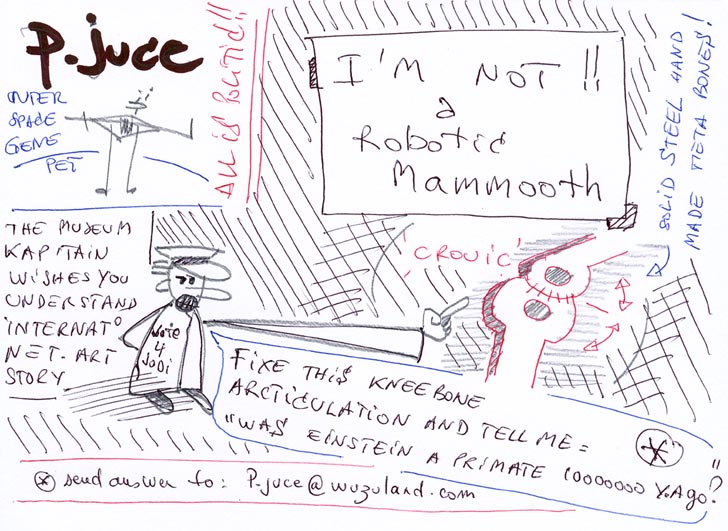 P.juce
OUTER
SPACE
GENE
PET
ALL iS POLiTiC!!
I'M NOT !!
a
RoboTic
MammooTh
SOLiD STEEL HAND
MADE META BONES!
THE MUSEUM
KAPITAIN
WISHES YOU
UNDERSTAND
INTERNAT°
NET. ART
STORY
Vote
4
JoDi
'CROUIC'
FiXE THiS KNEEBONE
ARCTiCULATION AND TELL ME =
"WAS EINSTEIN A PRIMATE 10000000 Y.Ago?"
* send answer to: P.juce@wuzuland.com